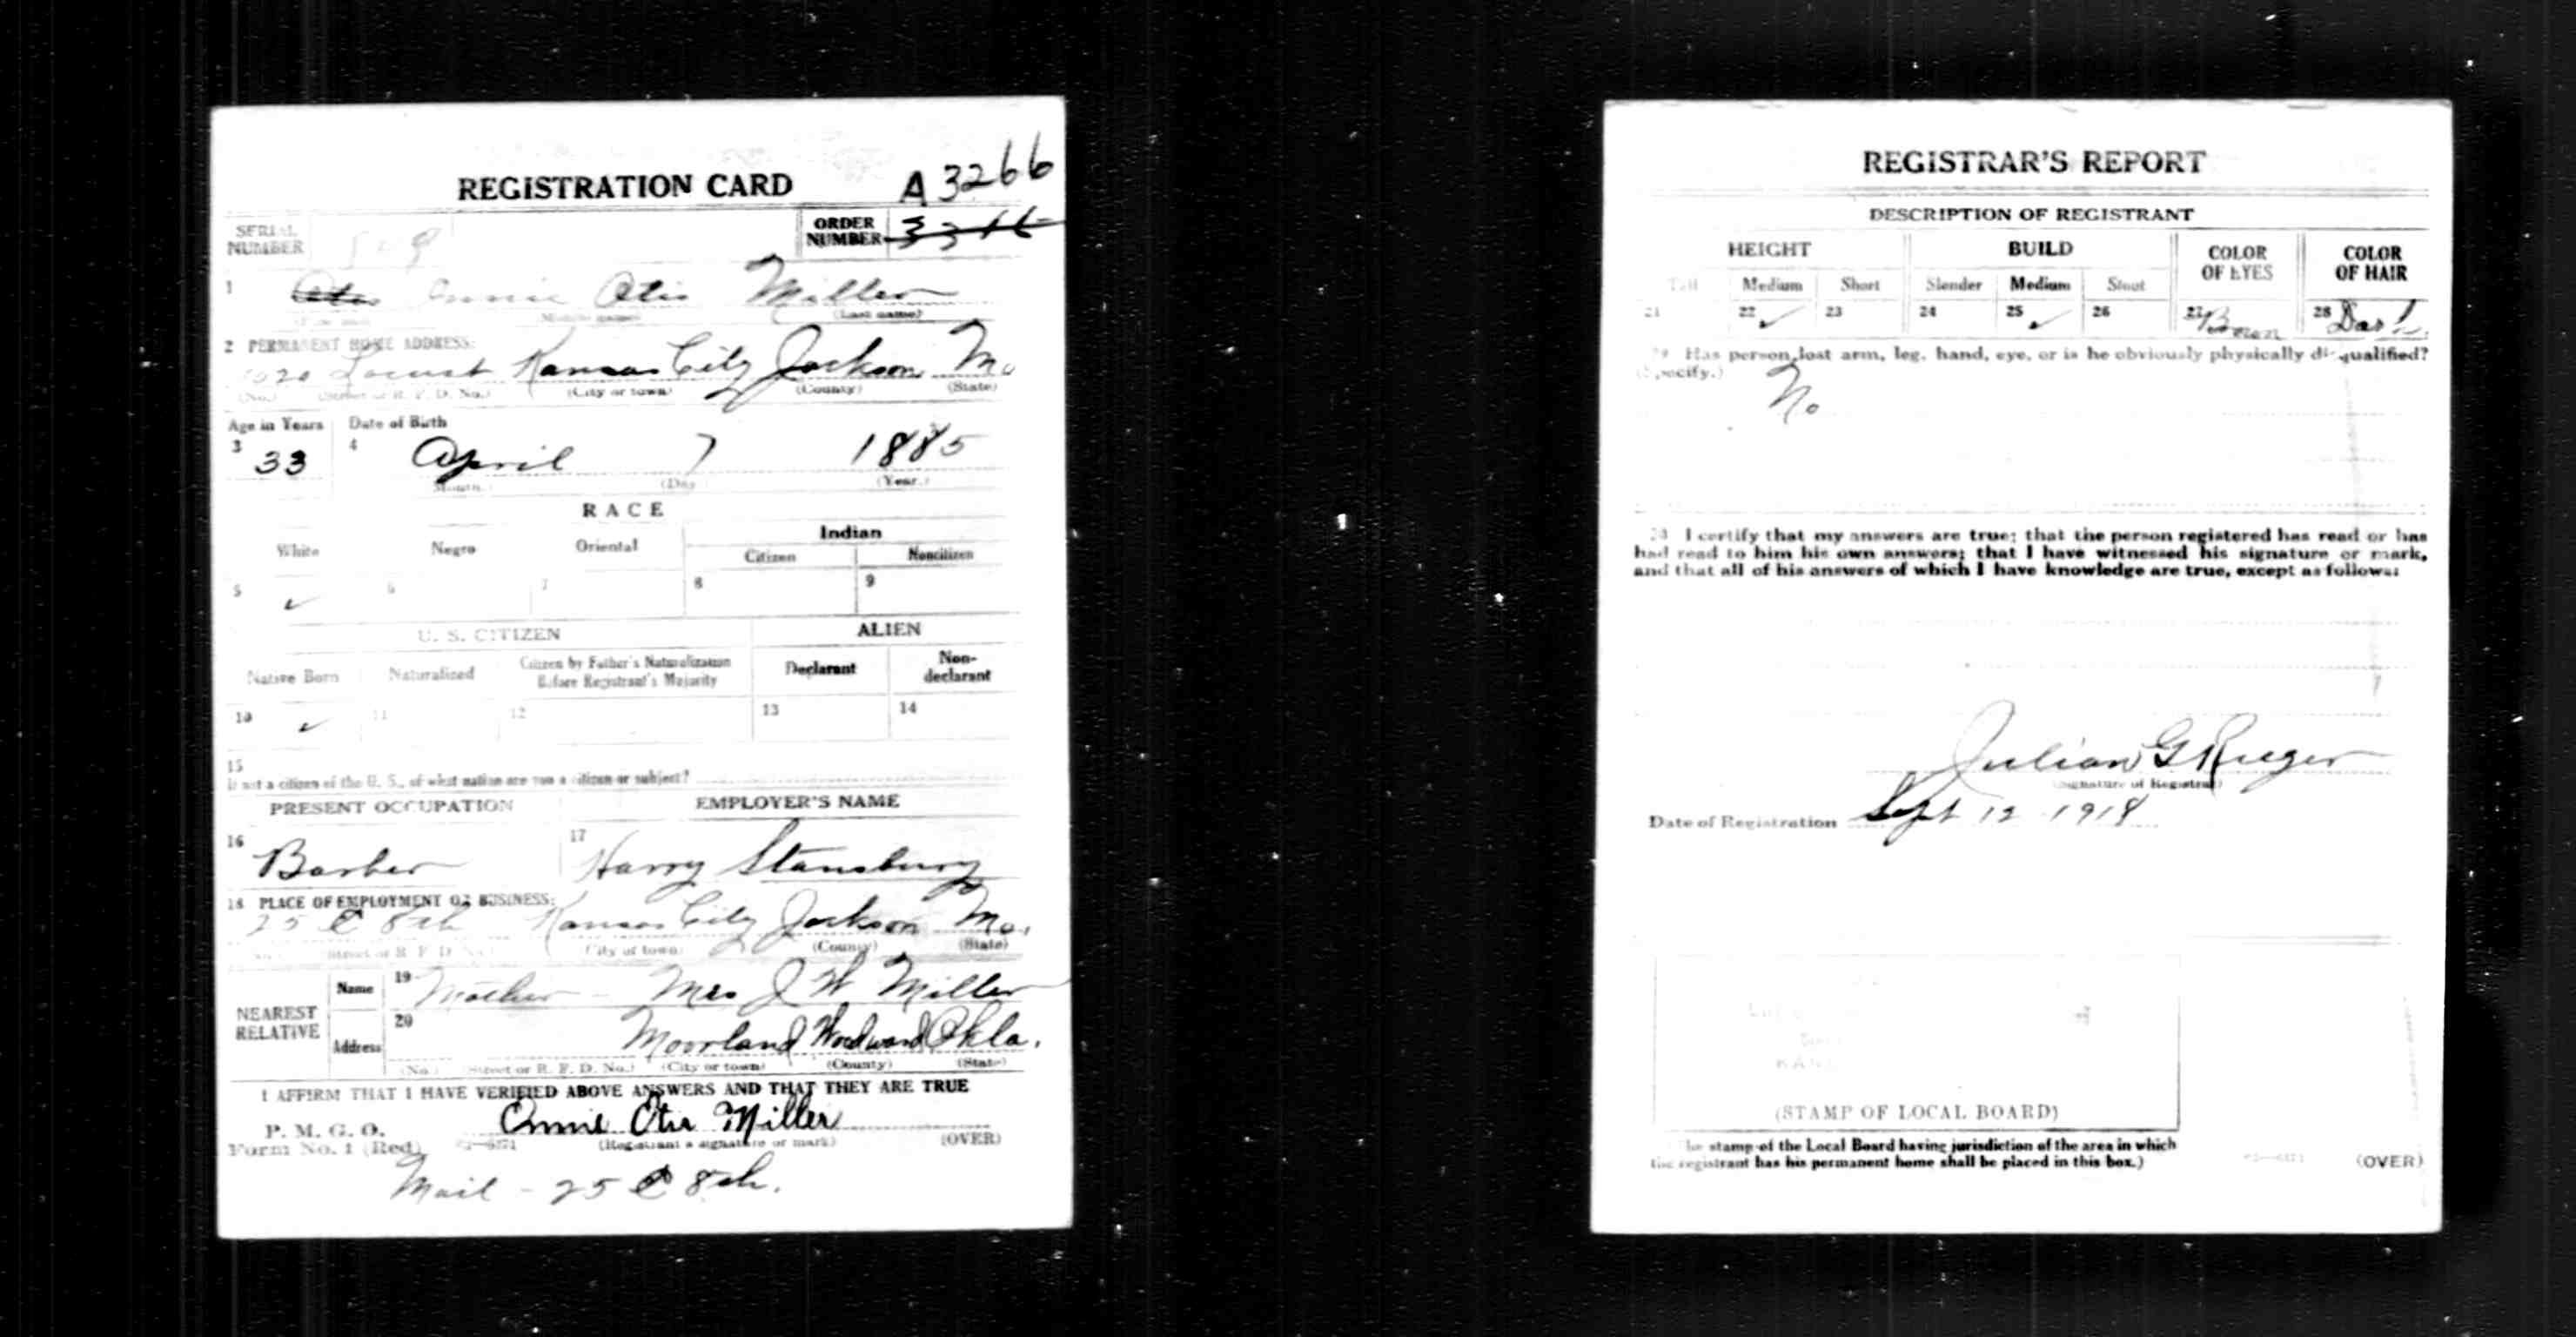 REGISTRATION CARD A3266
SERIAL NUMBER
ORDER NUMBER
1 Annie Otis Miller
(Middle name) (Last name)
2 PERMANENT HOME ADDRESS:
Locust Kansas City Jackson Mo
(No.) (Street or R. F. D. No.) (City or town) (County) (State)
Age in Years Date of Birth
3 33 4 April 7 1885
(Month.) (Day) (Year.)
RACE
White Negro Oriental Indian
Citizen Noncitizen
5 ✓ 6 7 8 9
U. S. CITIZEN ALIEN
Native Born Naturalized Citizen by Father's Naturalization Before Registrant's Majority Declarant Non-declarant
10 ✓ 11 12 13 14
15
If not a citizen of the U. S., of what nation are you a citizen or subject?
PRESENT OCCUPATION EMPLOYER'S NAME
16 Barber 17 Harry Stansbury
18 PLACE OF EMPLOYMENT OR BUSINESS:
25 E 8th Kansas City Jackson Mo.
(No.) (Street or R. F. D. No.) (City or town) (County) (State)
NEAREST RELATIVE
Name 19 Mother - Mrs J W Miller
Address 20 Moorland Woodward Okla.
(No.) (Street or R. F. D. No.) (City or town) (County) (State)
I AFFIRM THAT I HAVE VERIFIED ABOVE ANSWERS AND THAT THEY ARE TRUE
P. M. G. O.
Form No. 1 (Red) Annie Otis Miller
(Registrant's signature or mark) (OVER)
Mail - 25 E 8th.
REGISTRAR'S REPORT
DESCRIPTION OF REGISTRANT
HEIGHT BUILD COLOR OF EYES COLOR OF HAIR
Tall Medium Short Slender Medium Stout
21 22 ✓ 23 24 25 ✓ 26 27 Brown 28 Dark
29 Has person lost arm, leg, hand, eye, or is he obviously physically disqualified?
(Specify.) No
30 I certify that my answers are true; that the person registered has read or has
had read to him his own answers; that I have witnessed his signature or mark,
and that all of his answers of which I have knowledge are true, except as follows:
Julian G Rieger
(Signature of Registrar)
Date of Registration Sept 12 1918
(STAMP OF LOCAL BOARD)
(The stamp of the Local Board having jurisdiction of the area in which
the registrant has his permanent home shall be placed in this box.)
(OVER)